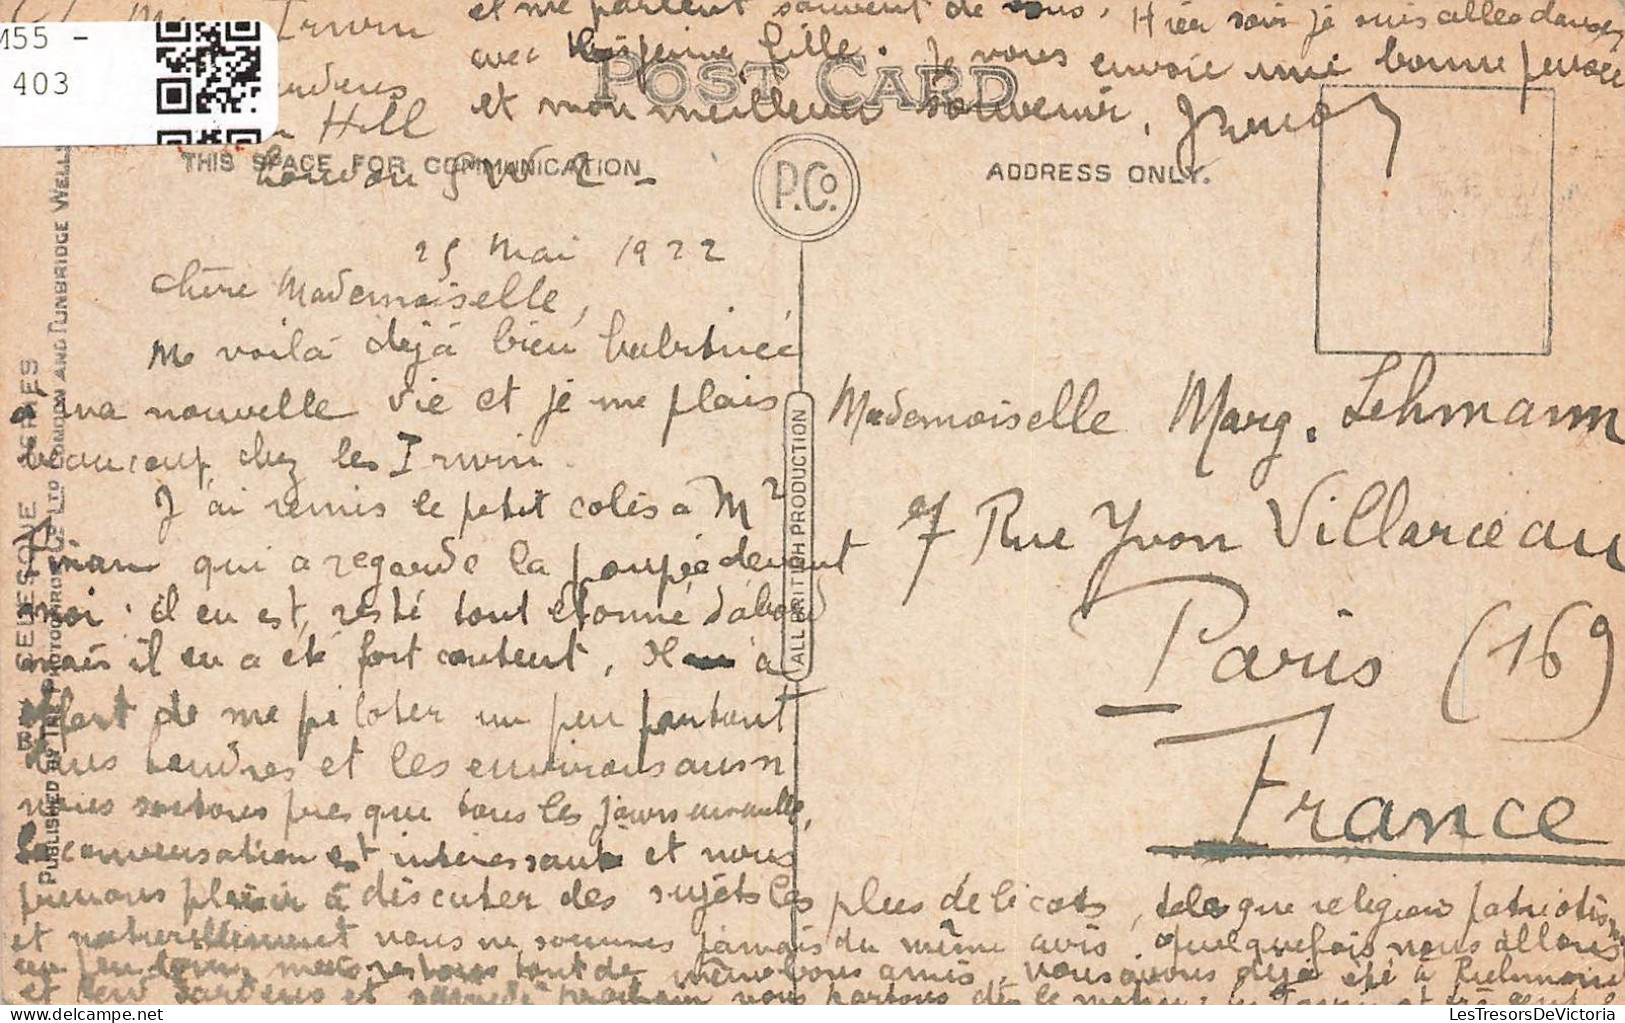 M55 -
403
Irwin
Hill
London SW 2 -
POST CARD
THIS SPACE FOR COMMUNICATION
ADDRESS ONLY.
P.Co.
ALL BRITISH PRODUCTION
25 Mai 1922
Chère Mademoiselle,
Me voilà déjà bien habituée
à ma nouvelle vie et je me plais
beaucoup chez les Irwin.
J'ai remis le petit colis à Mr
qui a regardé la poupée devant
moi. il en est resté tout étonné d'abord
mais il en a été fort content. Il a
de me piloter un peu partout
dans Londres et les environs aussi
nous sortons presque tous les jours ensemble,
la conversation est intéressante et nous
prenons plaisir à discuter des sujets les plus délicats, tels que religion patriotisme
et naturellement nous ne sommes jamais du même avis. quelquefois nous allons
un peu loin mais restons tout de même bons amis. nous avons déjà été à Richmond
et samedi prochain nous partons dès le matin
et me parlent souvent de vous. Hier soir je suis allée danser
avec fille. Je vous envoie une bonne pensée
et mon meilleur souvenir.
Mademoiselle Marg. Lehmann
7 Rue Yvon Villarceau
Paris (16e)
France
PUBLISHED BY THE PHOTOCHROM CO. LTD LONDON AND TUNBRIDGE WELLS
SERIES